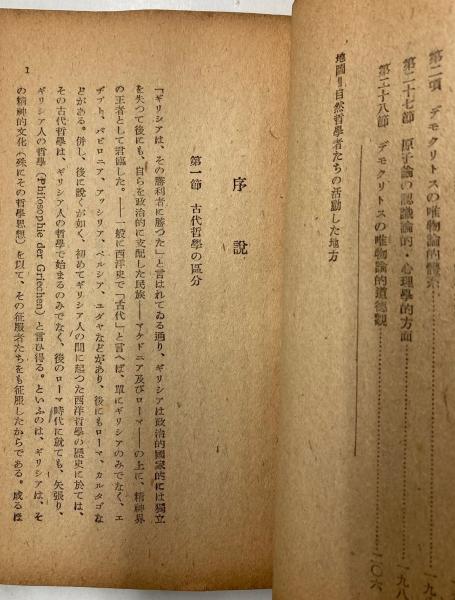 第二項 デモクリトスの唯物論的體系…………一九
第二十七節 原子論の認識論的・心理學的方面…………一九八
第二十八節 デモクリトスの唯物論的道德觀…………二〇六
地圖‖自然哲學者たちの活動した地方
序說
第一節 古代哲學の區分
「ギリシアは、その勝利者に勝つた」と言はれてゐる通り、ギリシアは政治的國家的には獨立
を失つて後にも、自らを政治的に支配した民族――マケドニア及びローマ――の上に、精神界
の王者として君臨した。――一般に西洋史で「古代」と言へば、單にギリシアのみでなく、エ
ヂプト、バビロニア、アッシリア、ペルシア、ユダヤなどがあり、後にもローマ、カルタゴな
どがある。併し、後に說くが如く、初めてギリシア人の間に起つた西洋哲學の歷史に於ては、
その古代哲學は、ギリシア人の哲學で始まるのみでなく、後のローマ時代に就ても、矢張り、
ギリシア人の哲學(Philosophie der Griechen)と言ひ得る。といふのは、ギリシアは、そ
の精神的文化(殊にその哲學思想)を以て、その征服者たちをも征服したからである。成る程
1